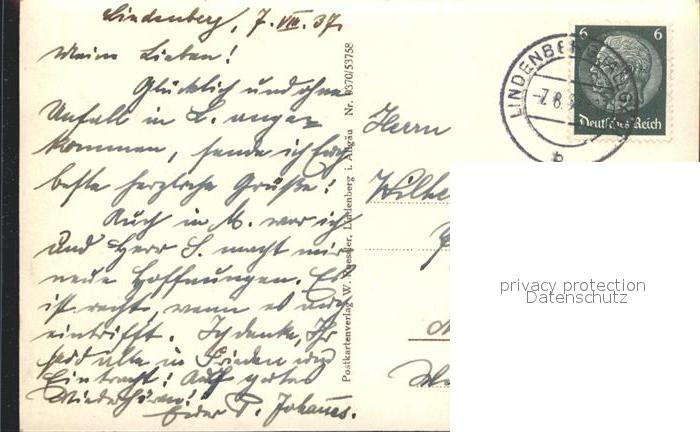 Lindenberg, 7. VIII. 37.
Meine Lieben!
Glücklich und ohne
Unfall in L. ange=
kommen, sende ich Euch
beste herzliche Grüße!
Auch in M. war ich
und Herr S. macht mir
neue Hoffnungen. Es
ist recht, wenn es auch
eintrifft. Ich denke, Ihr
seid alle in Frieden und
Eintracht! Auf gutes
Wiederhören!
Euer P. Johannes.
Postkartenverlag W. Kaessler, Lindenberg i. Allgäu Nr. 6370/53758
Herrn
LINDENBERG
-7.8.
b
6 6
Deutsches Reich
privacy protection
Datenschutz